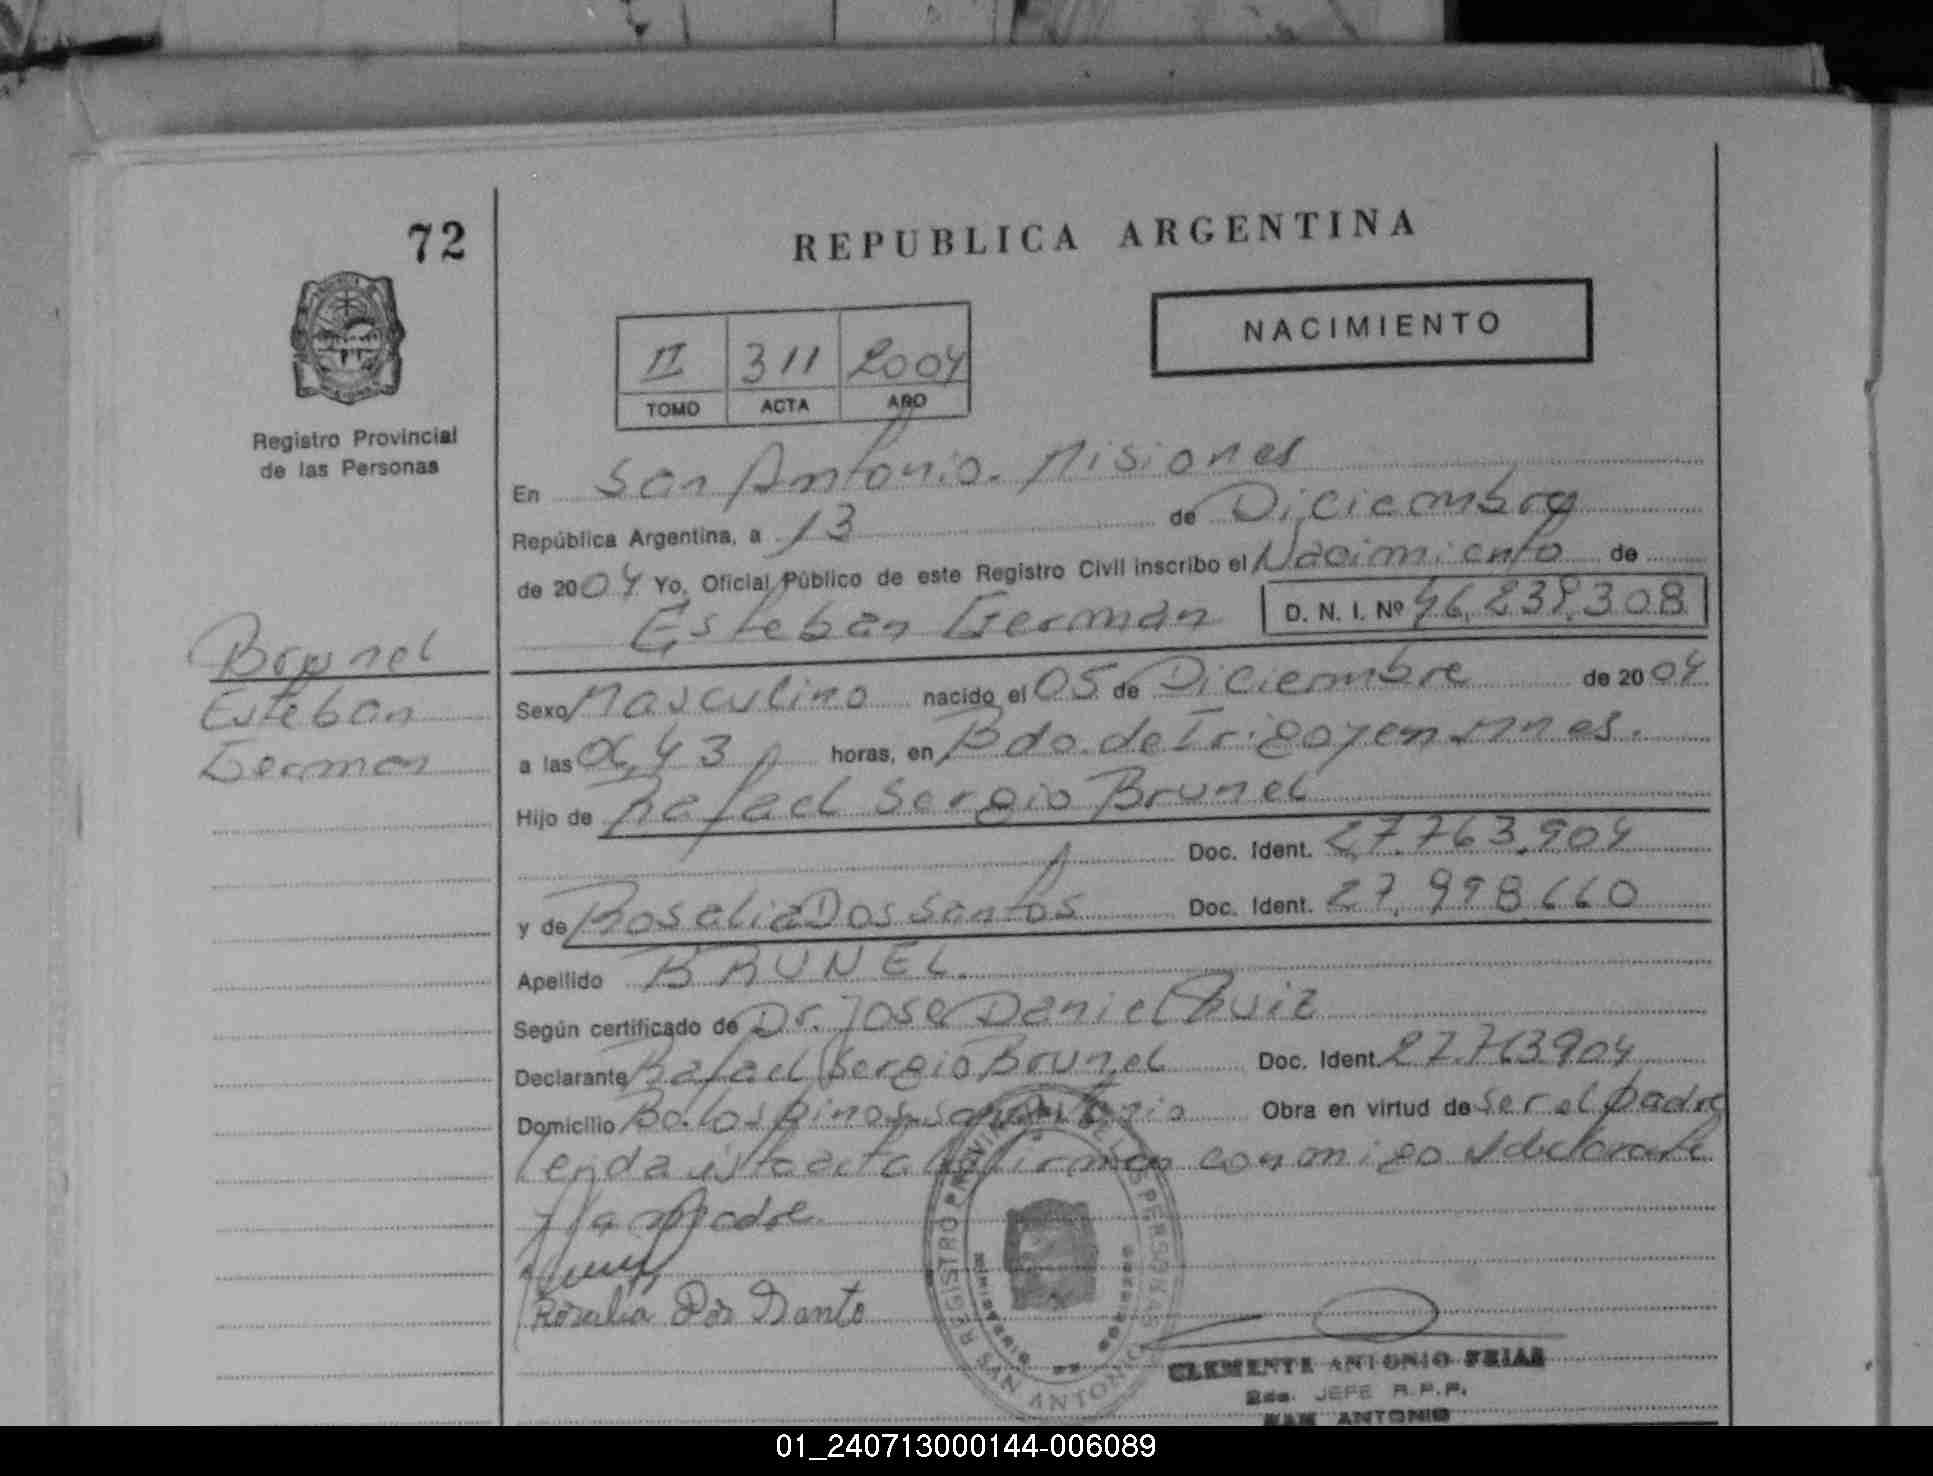 72
REPUBLICA ARGENTINA
NACIMIENTO
II 311 2004
TOMO ACTA AÑO
Registro Provincial
de las Personas
En San Antonio. Misiones
República Argentina, a 13 de Diciembre
de 2004 Yo, Oficial Público de este Registro Civil inscribo el Nacimiento de
Esteban German D. N. I. Nº 46.239.308
Brunel
Esteban
German
Sexo Masculino nacido el 05 de Diciembre de 2004
a las 06,43 horas, en Bdo. de Irigoyen Mnes.
Hijo de Rafael Sergio Brunel
Doc. Ident. 27.763.904
y de Rosalia Dos Santos Doc. Ident. 27.998.660
Apellido BRUNEL
Según certificado de Dr. Jose Daniel Ruiz
Declarante Rafael Sergio Brunel Doc. Ident. 27.763904
Domicilio Bo. los pinos San Antonio Obra en virtud de ser el padre
Leida esta acta la firman conmigo el declarante
y la Madre
Rosalia Dos Santo
REGISTRO PROVINCIAL DE LAS PERSONAS
SAN ANTONIO
CLEMENTE ANTONIO FRIAS
2do. JEFE R.P.P.
SAN ANTONIO
01_240713000144-006089